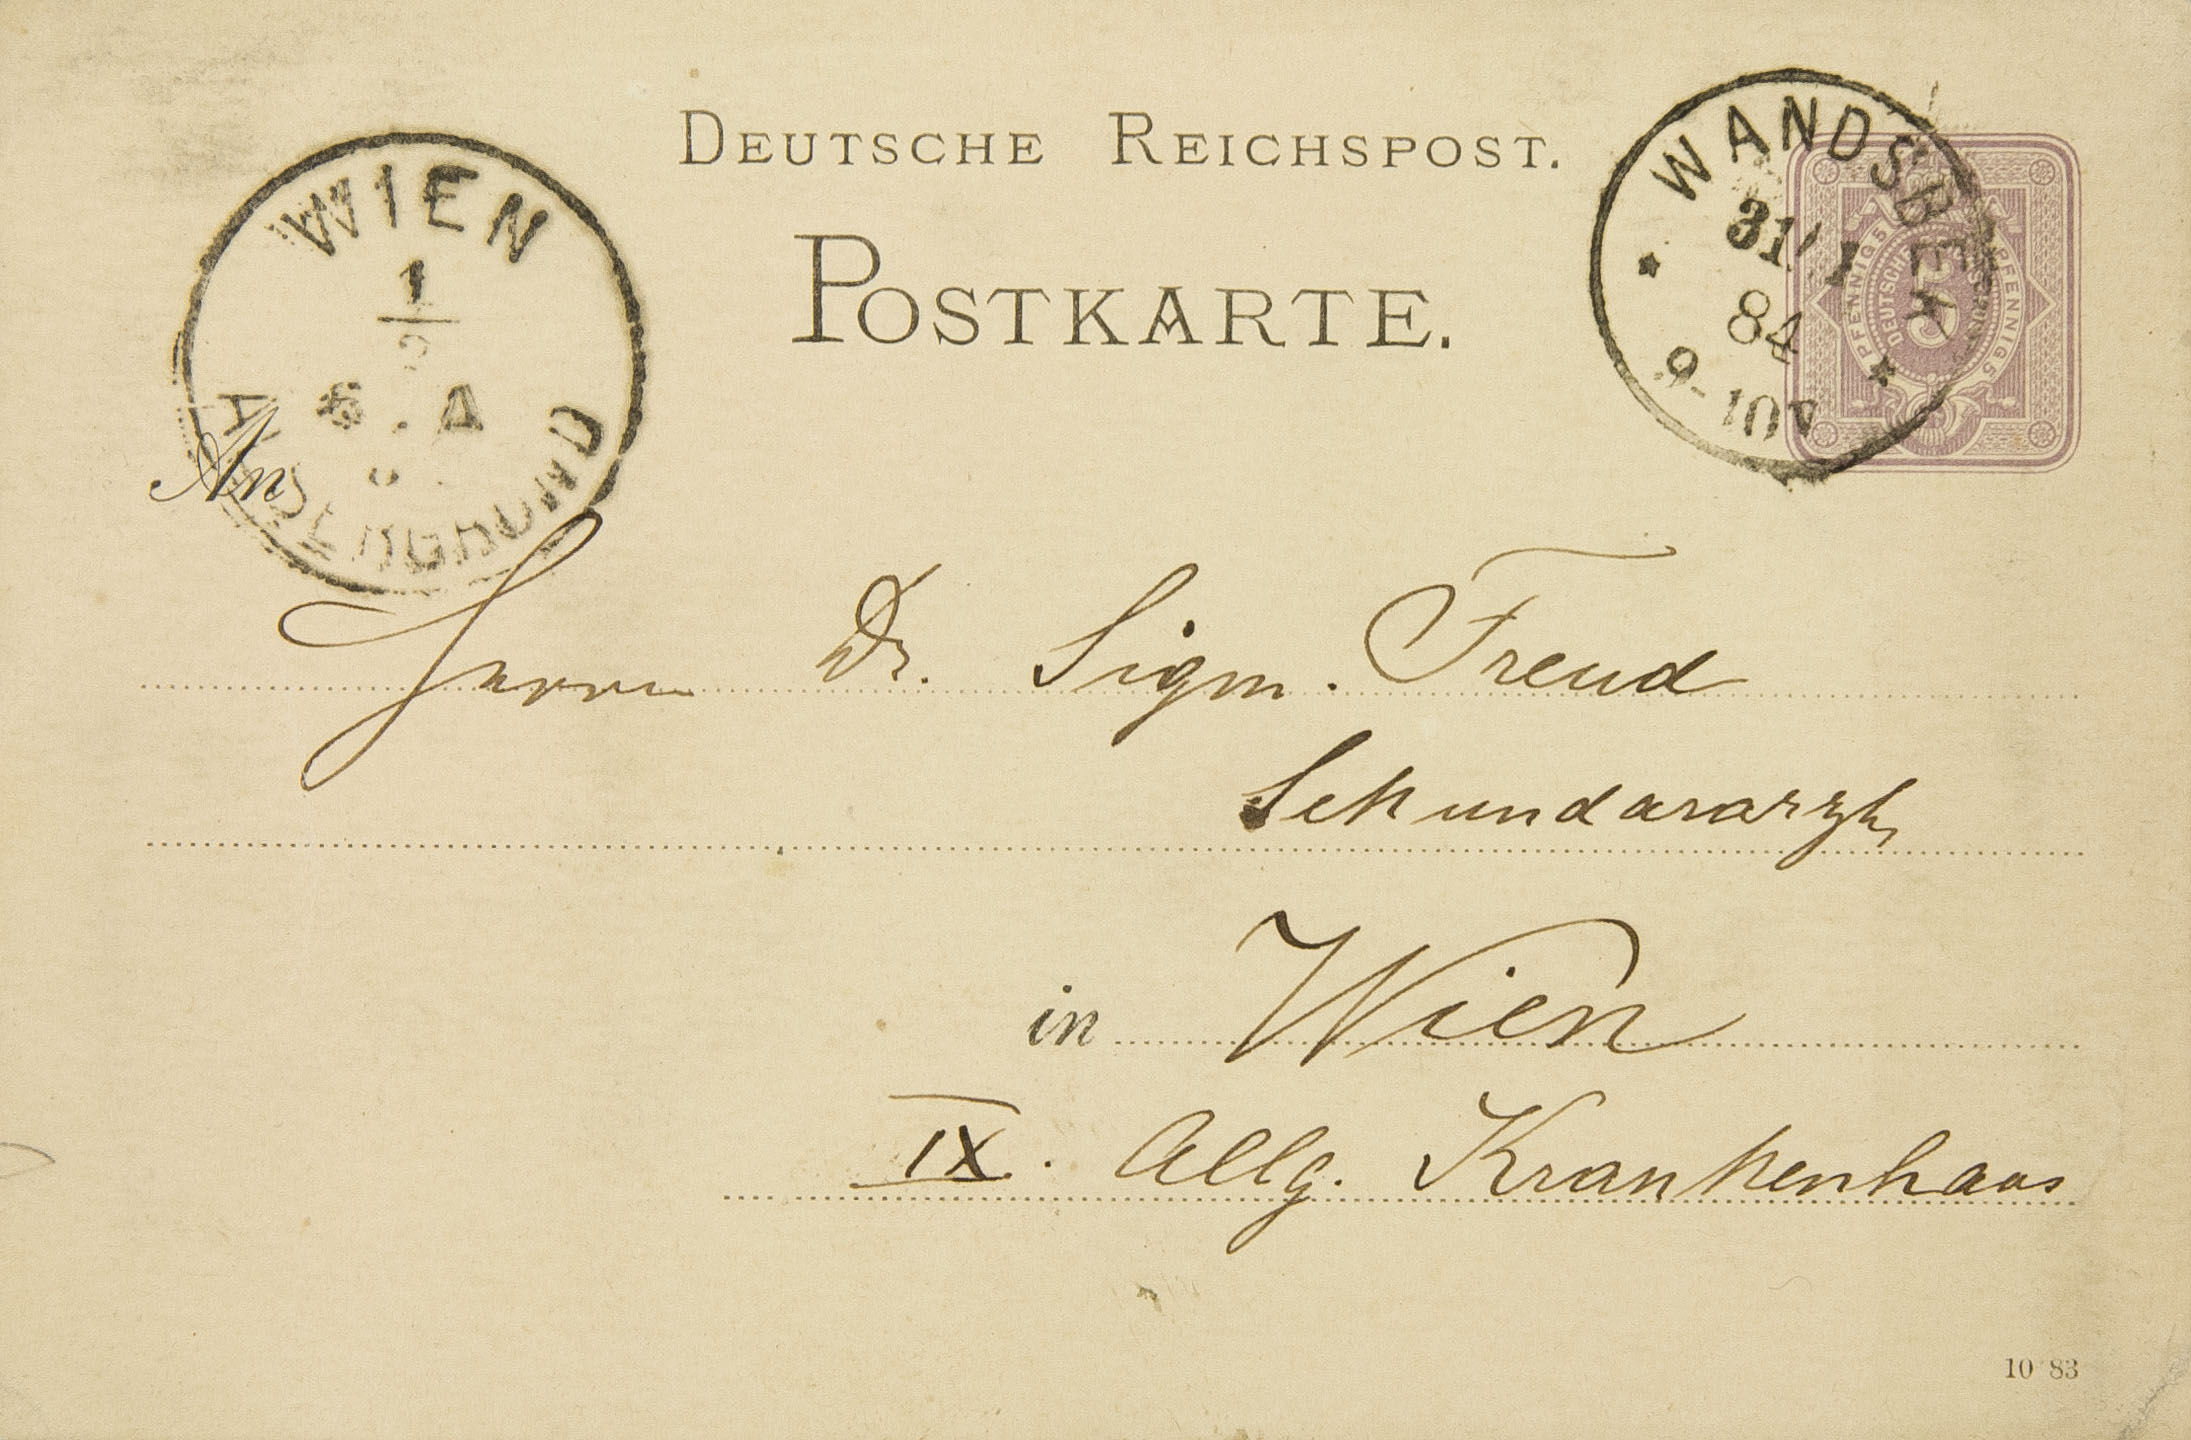 DEUTSCHE REICHSPOST.
POSTKARTE.
WIEN
1
ALSERGRUND
WANDSBEK
31/1
84
9-10V
PFENNIG 5 PFENNIG 5
DEUTSCHE
5
An
Herrn Dr. Sigm. Freud
Sekundararzt
in Wien
IX. Allg. Krankenhaus
10 83